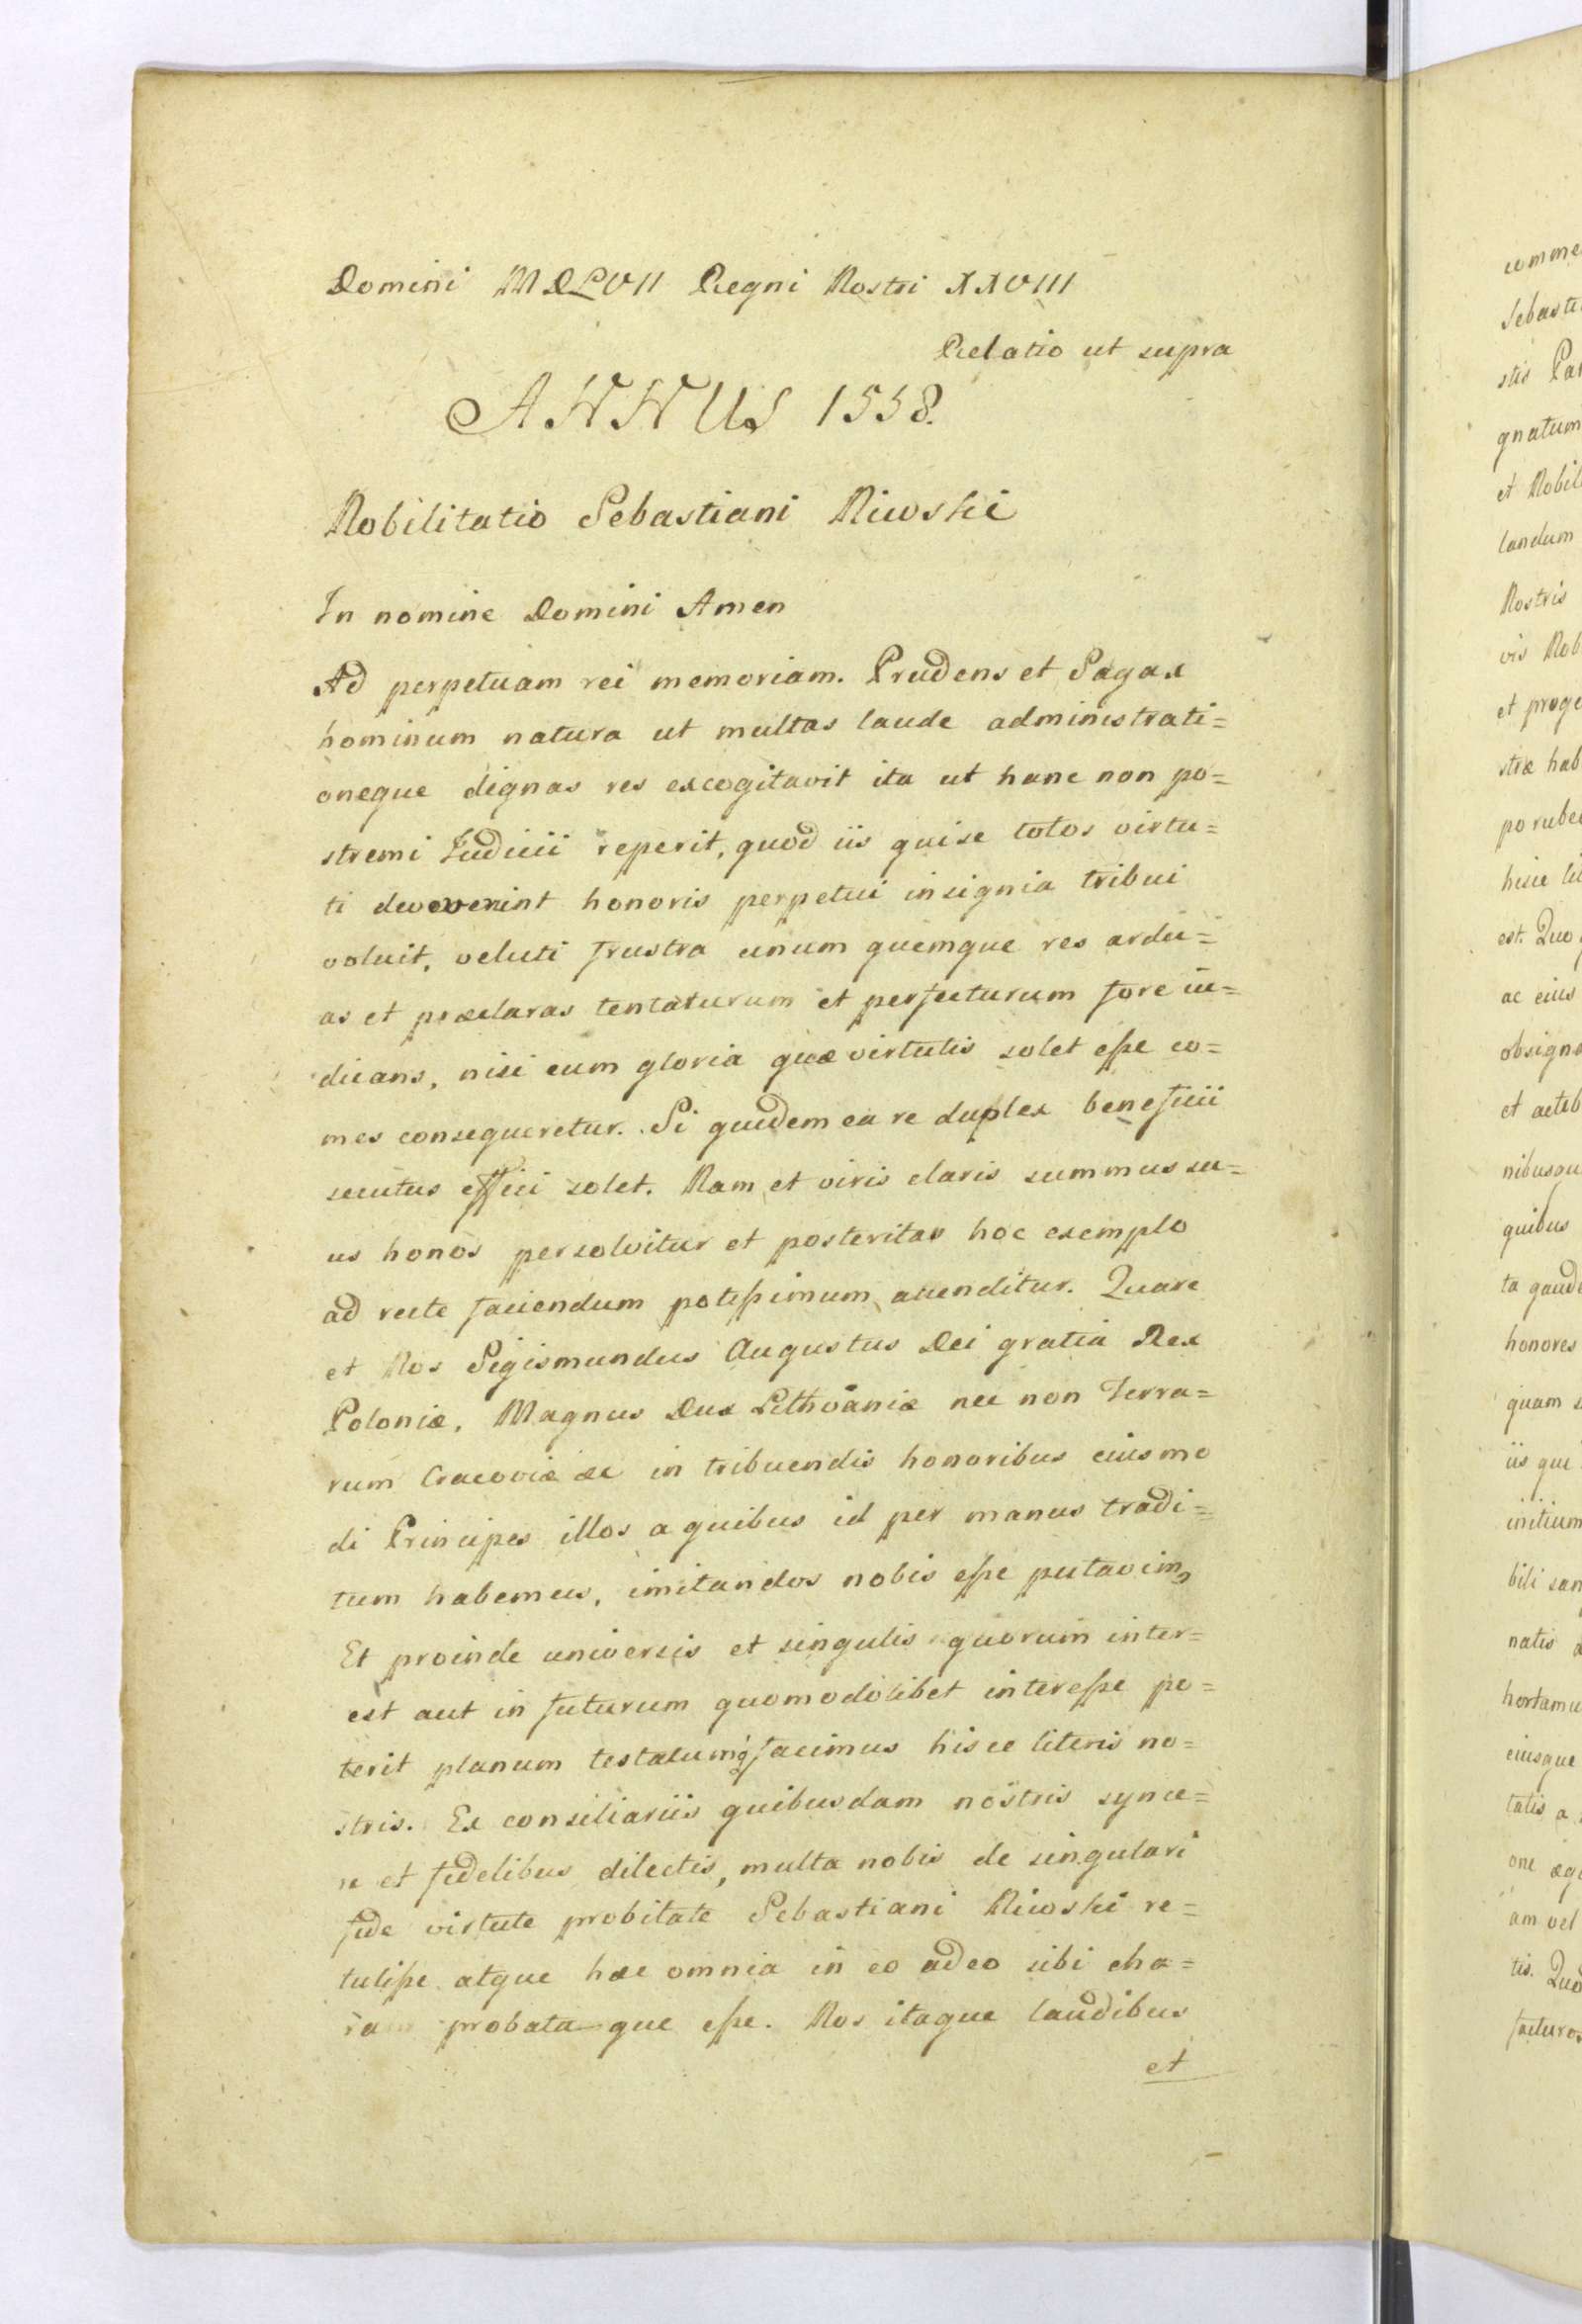 Domini MDLVII Regni Nostri XXVIII
Relatio ut supra
ANNUS 1558.
Nobilitatio Sebastiani Niwski
In nomine Domini Amen
Ad perpetuam rei memoriam. Prudens et Sagax
hominum natura ut multas laude administrati=
oneque dignas res excogitavit ita ut hanc non po=
stremi Iudicii reperit, quod iis qui se totos virtu=
ti devoverint honoris perpetui insignia tribui
voluit, veluti frustra unum quemque res ardu=
as et præclaras tentaturum et perfecturum fore iu=
dicans, nisi eum gloria quæ virtutis solet esse co=
mes consequeretur. Si quidem ea re duplex beneficii
secutus effici solet. Nam et viris claris summus su=
us honos persolvitur et posteritas hoc exemplo
ad recte faciendum potissimum accenditur. Quare
et Nos Sigismundus Augustus Dei gratia Rex
Poloniæ, Magnus Dux Lithvaniæ nec non Terra=
rum Cracoviæ &c in tribuendis honoribus eiusmo
di Principes illos a quibus id per manus tradi=
tum habemus, imitandos nobis esse putavim9
Et proinde universis et singulis quorum inter=
est aut in futurum quomodolibet interesse po=
terit planum testatumq facimus hisce literis no=
stris. Ex consiliariis quibusdam nostris synce=
re et fidelibus dilectis, multa nobis de singulari
fide virtute probitate Sebastiani Niwski re=
tulisse atque hæc omnia in eo adeo sibi cha=
ra probata que esse. Nos itaque laudibus
et
comme
Sebasti
stis Pa
gnatum
et Nobil
landum
Nostris
vis Nob
et proge
stræ hab
po rube
hisce li
est. Quo
ac eius
obsigna
et acteb
nibusqu
quibus
ta gaude
honores
quam s
iis qui
initium
bili san
natis
hortamu
eiusque
tatis a
one æq
am vel
tis. Quo
facturos